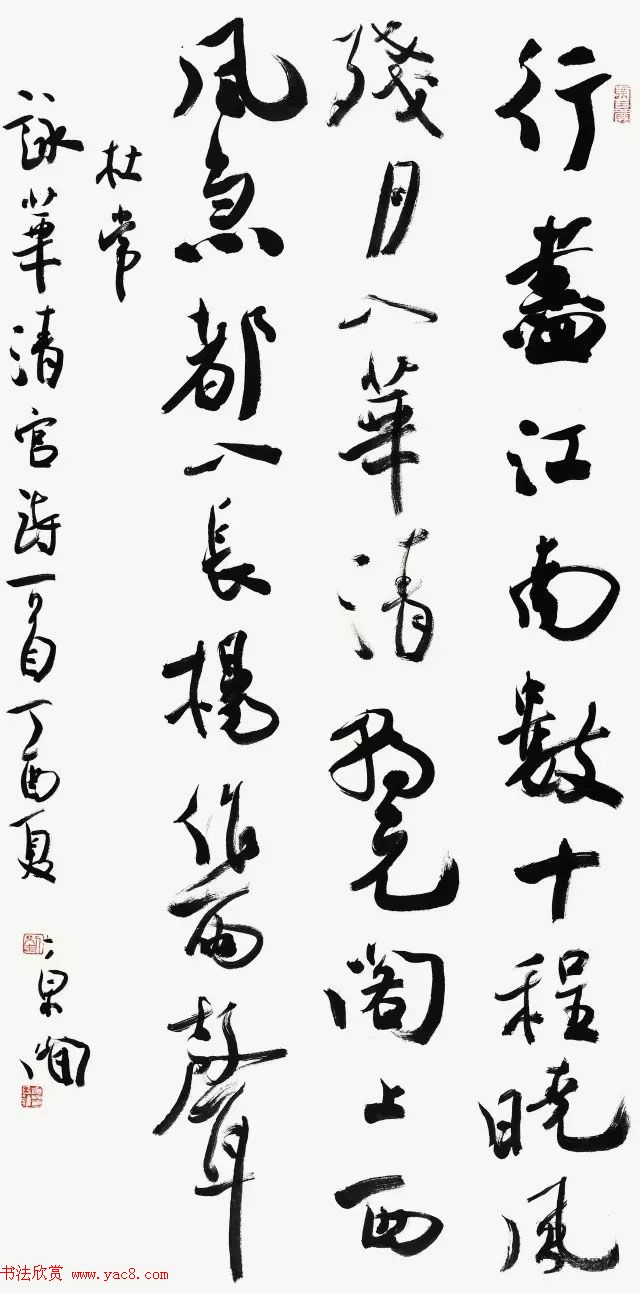 行盡江南數十程曉風
殘月入華清朝元閣上西
風急都入長楊作雨聲
杜常
詠華清宮詩一首丁酉夏
书法欣赏 www.yac8.com